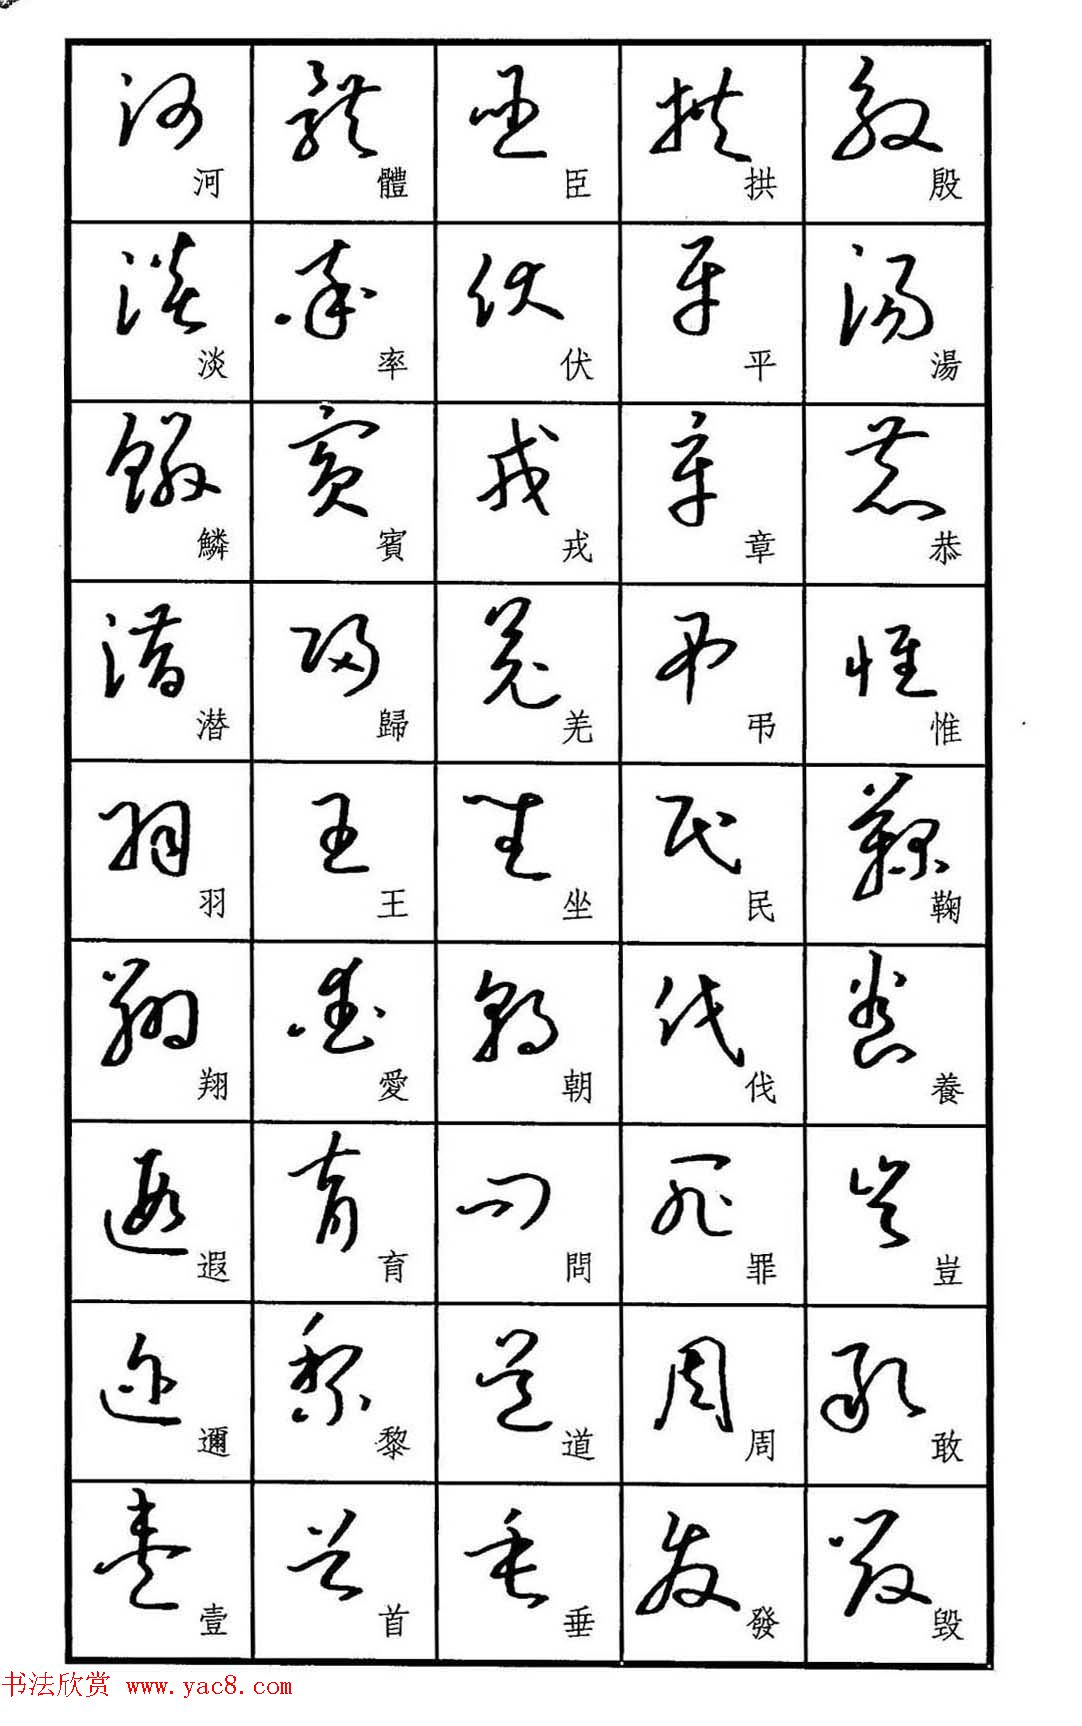 殷湯恭惟鞠養豈敢毀
拱平章弔民伐罪周發
臣伏戎羌坐朝問道垂
體率賓歸王愛育黎首
河淡鱗潜羽翔遐邇壹
书法欣赏 www.yac8.com